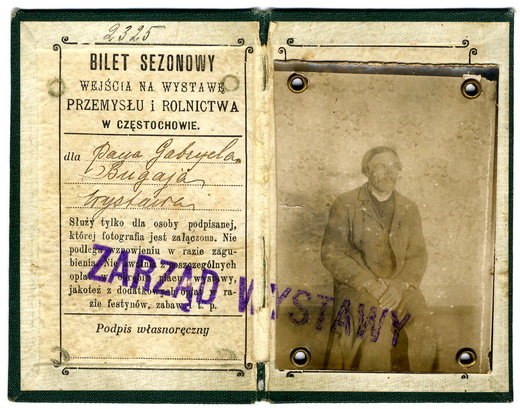 2325
BILET SEZONOWY
WEJŚCIA NA WYSTAWĘ
PRZEMYSŁU i ROLNICTWA
W CZĘSTOCHOWIE.
dla Pana Gabryela
Bugaja
Wystawa
Służy tylko dla osoby podpisanej,
której fotografia jest załączona. Nie
podlega wznowieniu w razie zagu-
bienia. Nie uwalnia od poszczególnych
opłat w obrębie placu wystawy,
jakoteż z dodatkowych opłat w ra-
zie festynów, zabaw i t. p.
Podpis własnoręczny
ZARZĄD WYSTAWY